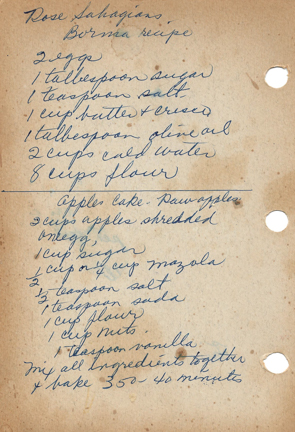 Rose Sahagians
Borma recipe
2 eggs
1 talbespoon sugar
1 teaspoon salt
1 cup butter & crisco
1 talbespoon olive oil
2 cups cold water
8 cups flour
Apples Cake - Raw apples
2 cups apples shredded
one egg,
1 cup sugar
1/2 cup or 1/4 cup mazola
1/2 teaspoon salt
1 teaspoon soda
1 cup flour
1 cup nuts.
1 teaspoon vanilla.
Mix all ingredients together
& bake 350 - 40 minutes